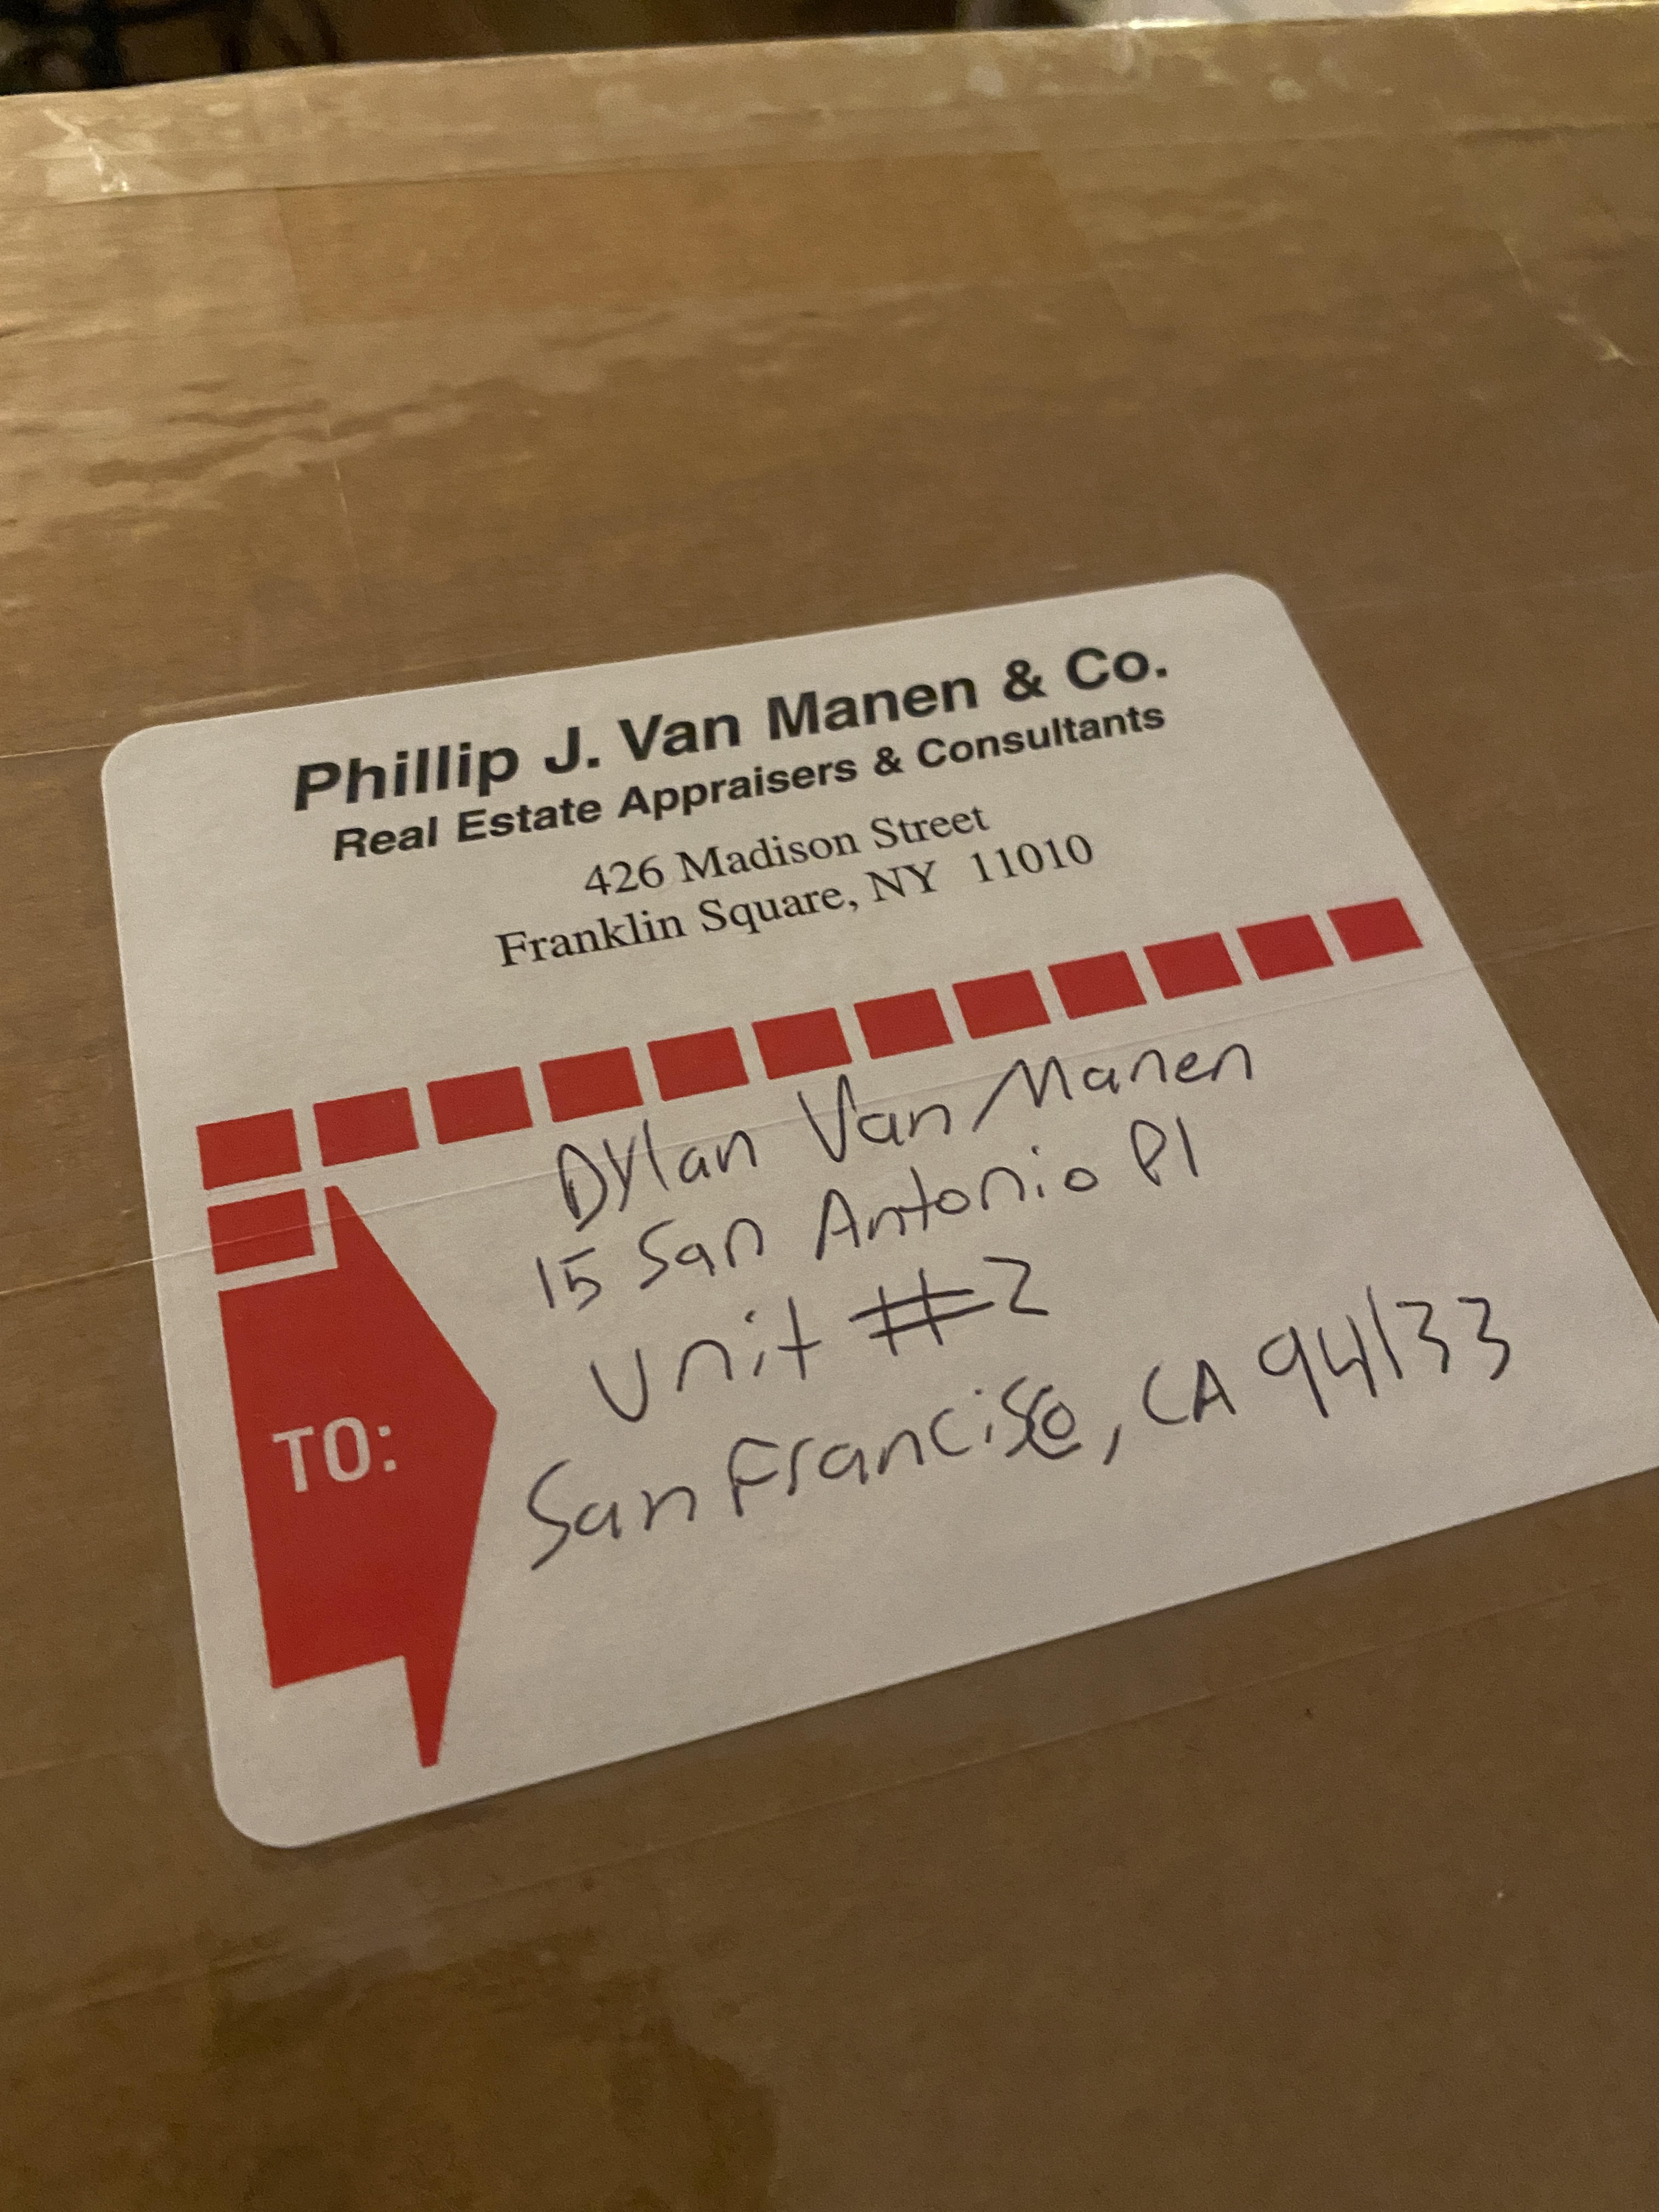 Phillip J. Van Manen & Co.
Real Estate Appraisers & Consultants
426 Madison Street
Franklin Square, NY 11010
Dylan Van Manen
15 San Antonio Pl
Unit #2
San Francisco, CA 94133
TO: